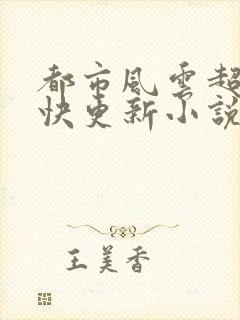 都市風雲超
快更新小說
王美香